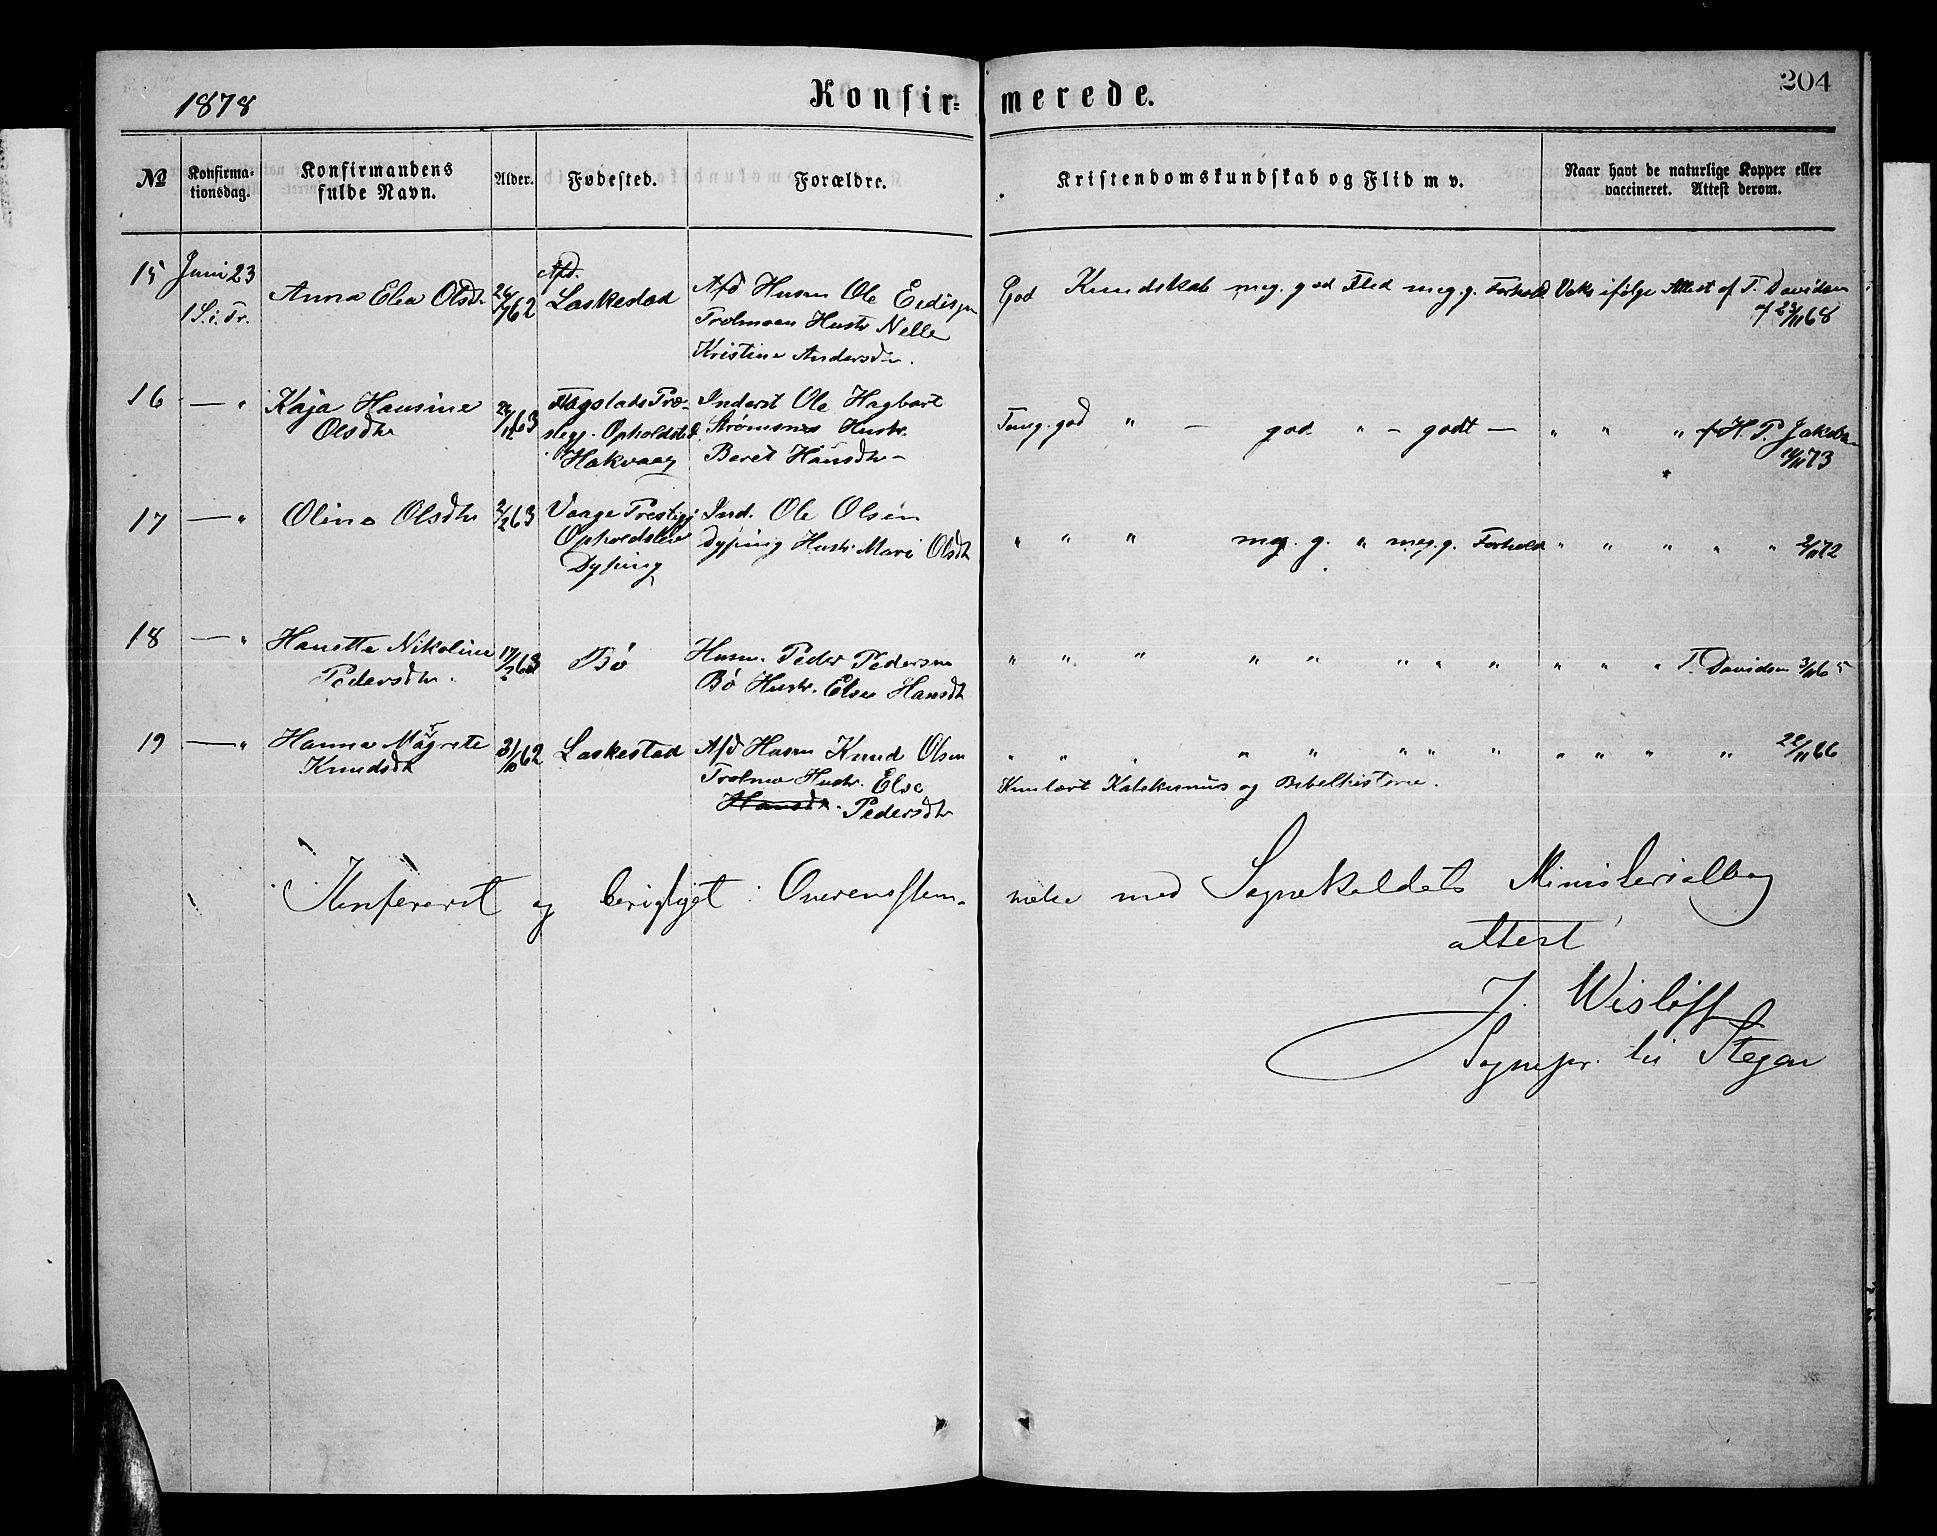 1878
Konfir-
merede.
204
No
Konfirma-
tionsdag.
Konfirmandens
fulde Navn.
Alder.
Fødested.
Forældre.
Kristendomskundskab og Flid m v.
Naar havt de naturlige Kopper eller
vaccineret. Attest derom.
15 Juni 23
1 S. i. Tr.
Anna Elea Olsdtr
62
Laskestad
Afd Husm Ole
Trolmoen Hustr Nelle
Kristine Andersdtr.
God Kundskab meg. god Flid meg g. Forhold Vaks ifølge Attest af T. Davidsen
af 23/11 68
16 — " Kaja Hansine
Olsdtr
63
Opholdsted
Hakvaag
Inderst Ole Hagbart
Strømsnes Hustr.
Beret Hansdtr
Tmeg. god " — god " — godt — " " " af H. P. Jakobsen
73
17 — " Oline Olsdtr
2/2 63
Vaage Prestegj
Dyping
Ind. Ole Olsen
Dyping Hustr Mari Olsdtr
" " " meg. g. " meg. g. Forhold " " " " " 2/11 72
18 — " Hanette Nikoline
Pedersdtr.
17/2 63
Bø
Husm. Peder Pedersen
Bø Hustr. Else Hansdtr
" " " " " " " " " " " T. Davidsen 3/11 65
19 — " Hanna Magrete
Knudsdtr
31/10 62
Laskestad
Afd Husm Knud Olsen
Hustr. Else
Hansdtr. Pedersdtr
" " " " " " " " " " " " 22/11 66
Kun lært Katekismus og Bibelhistorie.
Konfereret og berigtiget i Overensstem-
melse med Sognekaldets Ministerialbog
attest
J. Wisløff
Sognepr. til Stegen